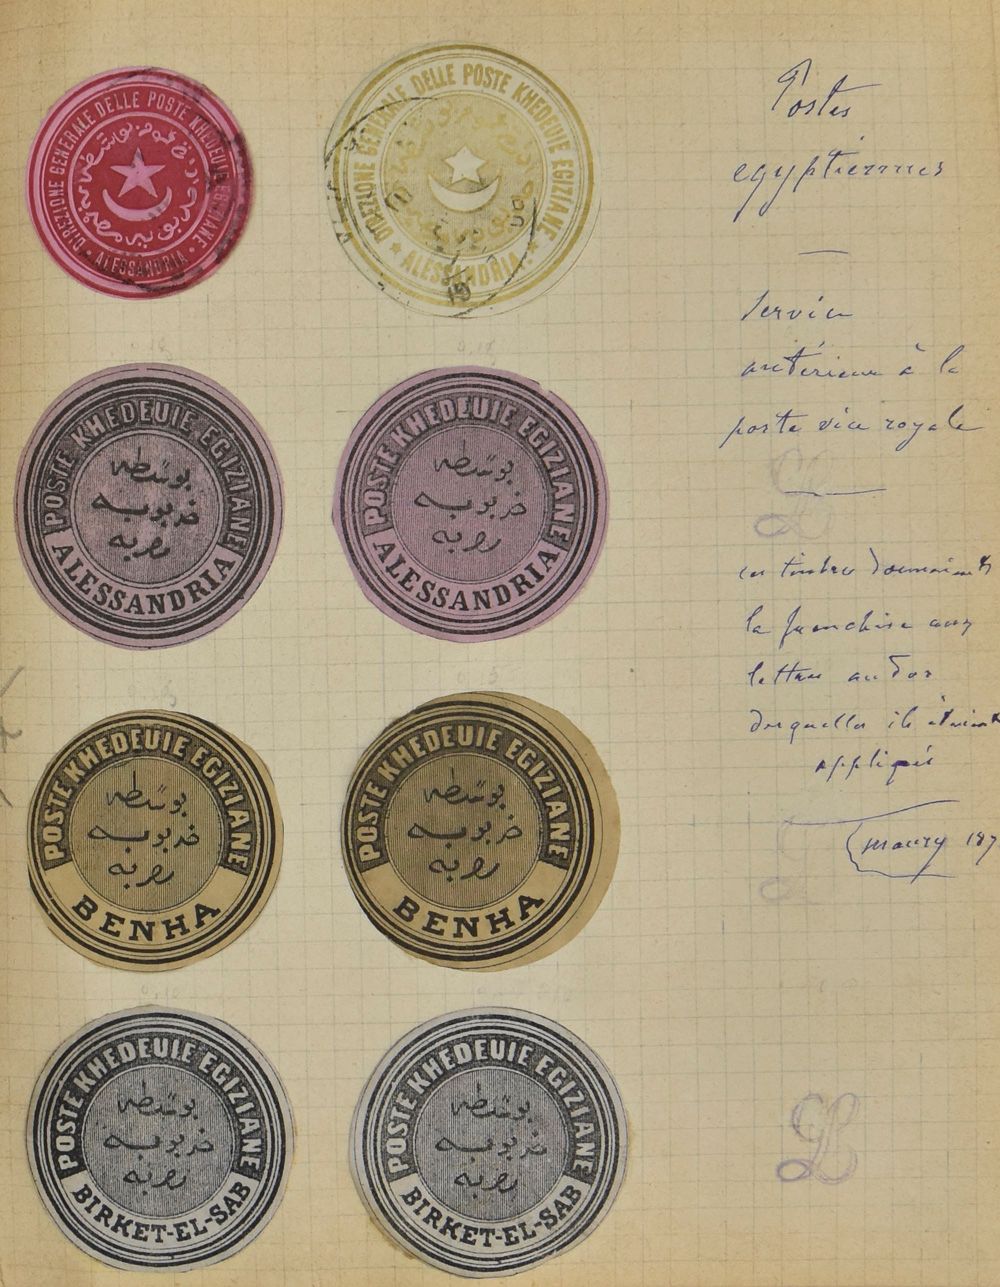 DIREZIONE GENERALE DELLE POSTE KHEDEUIE EGIZIANE
ALESSANDRIA
DIREZIONE GENERALE DELLE POSTE KHEDEUIE EGIZIANE
ALESSANDRIA
Postes
egyptiennes
Service
antérieur à la
poste vice royale
POSTE KHEDEUIE EGIZIANE
بوسطه
خديويه
مصريه
ALESSANDRIA
POSTE KHEDEUIE EGIZIANE
بوسطه
خديويه
مصريه
ALESSANDRIA
ces timbres donnaient
la franchise aux
lettres au dos
desquelles ils étaient
appliqués
Maury 187
POSTE KHEDEUIE EGIZIANE
بوسطه
خديويه
مصريه
BENHA
POSTE KHEDEUIE EGIZIANE
بوسطه
خديويه
مصريه
BENHA
POSTE KHEDEUIE EGIZIANE
بوسطه
خديويه
مصريه
BIRKET-EL-SAB
POSTE KHEDEUIE EGIZIANE
بوسطه
خديويه
مصريه
BIRKET-EL-SAB